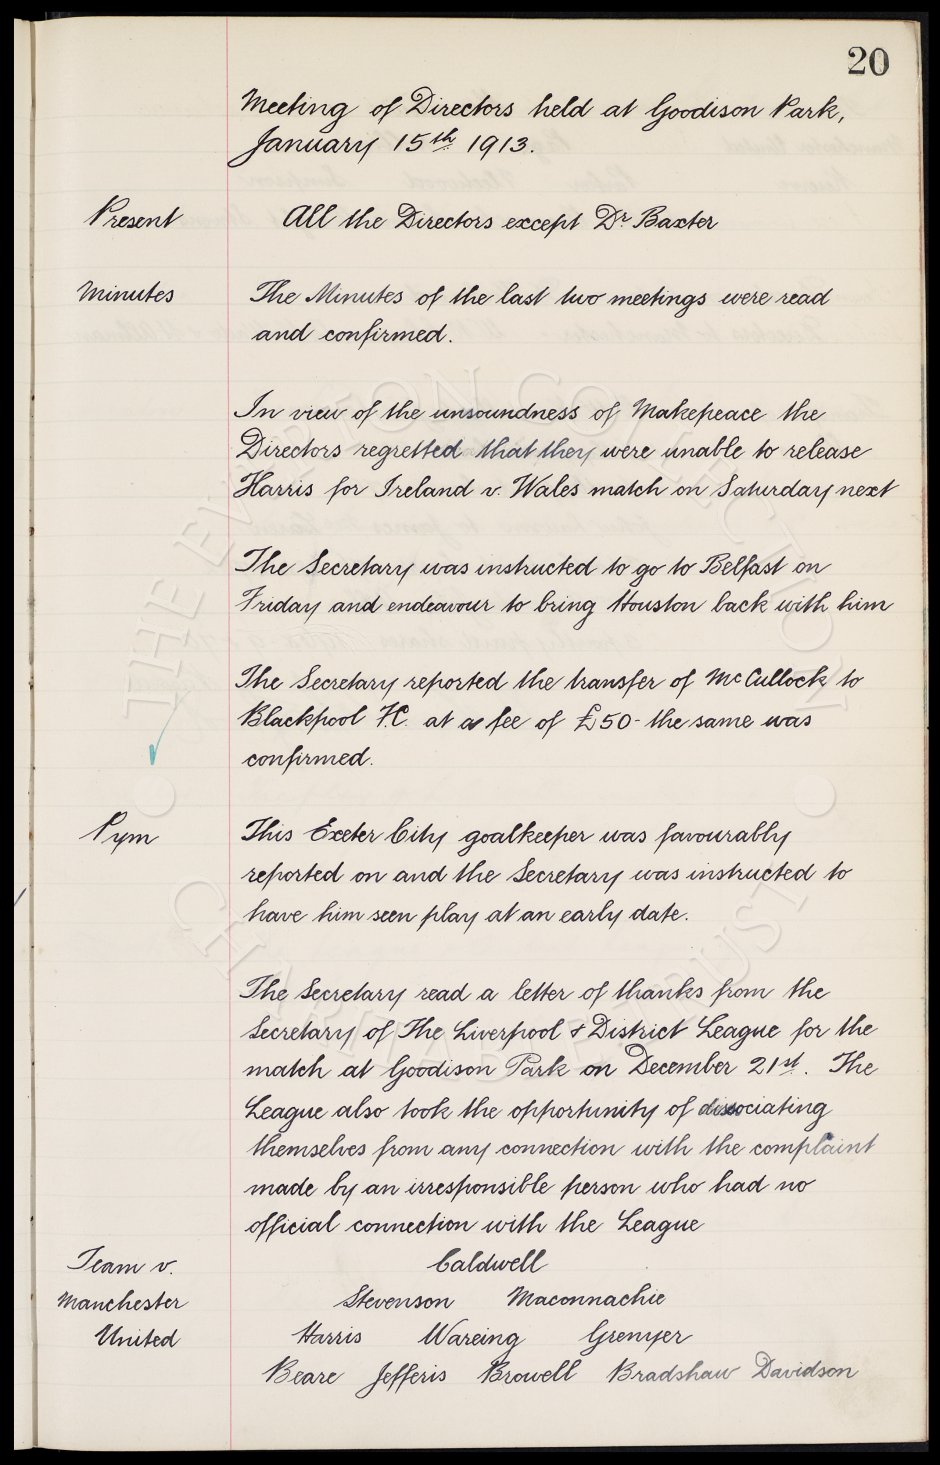 20
Meeting of Directors held at Goodison Park,
January 15th 1913.
Present All the Directors except Dr. Baxter
Minutes The Minutes of the last two meetings were read
and confirmed.
In view of the unsoundness of Makepeace the
Directors regretted that they were unable to release
Harris for Ireland v. Wales match on Saturday next
The Secretary was instructed to go to Belfast on
Friday and endeavour to bring Houston back with him
The Secretary reported the transfer of McCullock to
Blackpool FC. at a fee of £50 - the same was
confirmed.
Pym This Exeter City goalkeeper was favourably
reported on and the Secretary was instructed to
have him seen play at an early date.
The Secretary read a letter of thanks from the
Secretary of The Liverpool & District League for the
match at Goodison Park on December 21st. The
League also took the opportunity of dissociating
themselves from any connection with the complaint
made by an irresponsible person who had no
official connection with the League
Team v. Caldwell
Manchester Stevenson Maconnachie
United Harris Wareing Grenyer
Beare Jefferis Browell Bradshaw Davidson
THE EVERTON COLLECTION
CHARITABLE TRUST